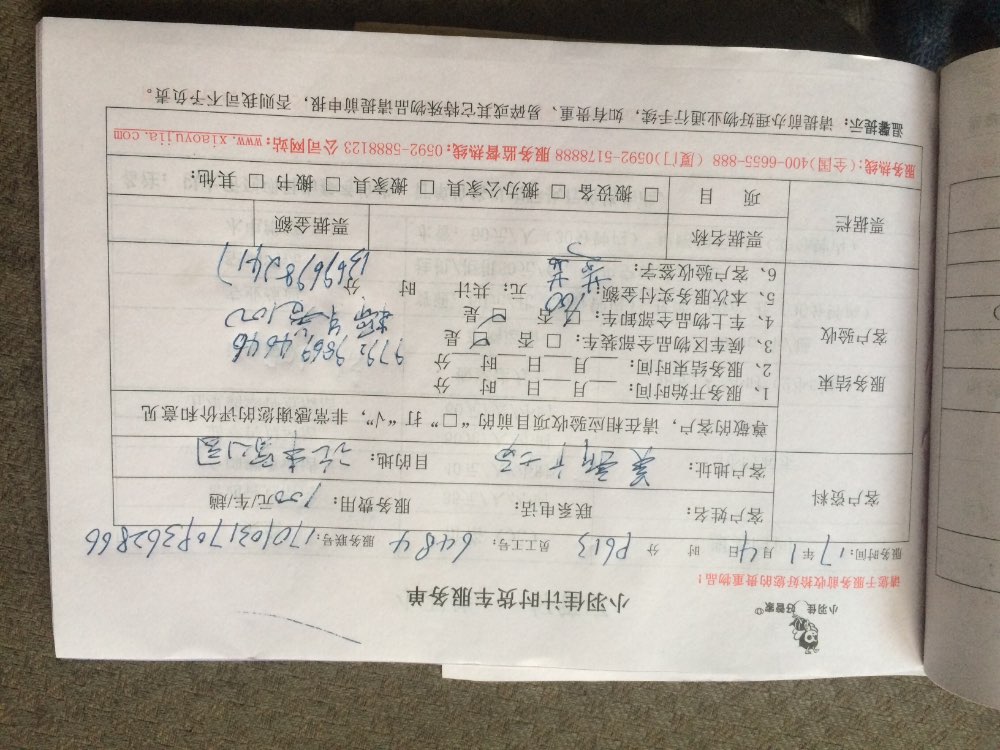 小羽佳 好管家
请您于服务前收拾好您的贵重物品!
小羽佳计时货车服务单
服务时间: 17 年 1 月 4 日 时 分 P613 员工工号: 6484 服务联号: 1701031709362866
客户资料
客户姓名: 联系电话: 服务费用: 150元/车/趟
客户地址: 目的地:
尊敬的客户,请在相应验收项目前的“□”打“√”,非常感谢您的评价和意见
服务结束
客户验收
1、服务开始时间: 月 日 时 分
2、服务结束时间: 月 日 时 分
3、候车区物品全部装车: □ 否 ☑ 是
4、车上物品全部卸车: □ 否 ☑ 是
5、本次服务实付金额: 160 元; 共计 时 分
6、客户验收签字:
13696982417
票据栏
票据名称 票据金额
项 目 □ 搬设备 □ 搬办公家具 □ 搬家具 □ 搬书 □ 其他:
服务热线:(全国)400-6655-888 (厦门)0592-5178888 服务监督热线:0592-5888123 公司网站:www.xiaoyujia.com
温馨提示: 请提前办理好物业通行手续,如有贵重、易碎或其它特殊物品请提前申报,否则我司不予负责。